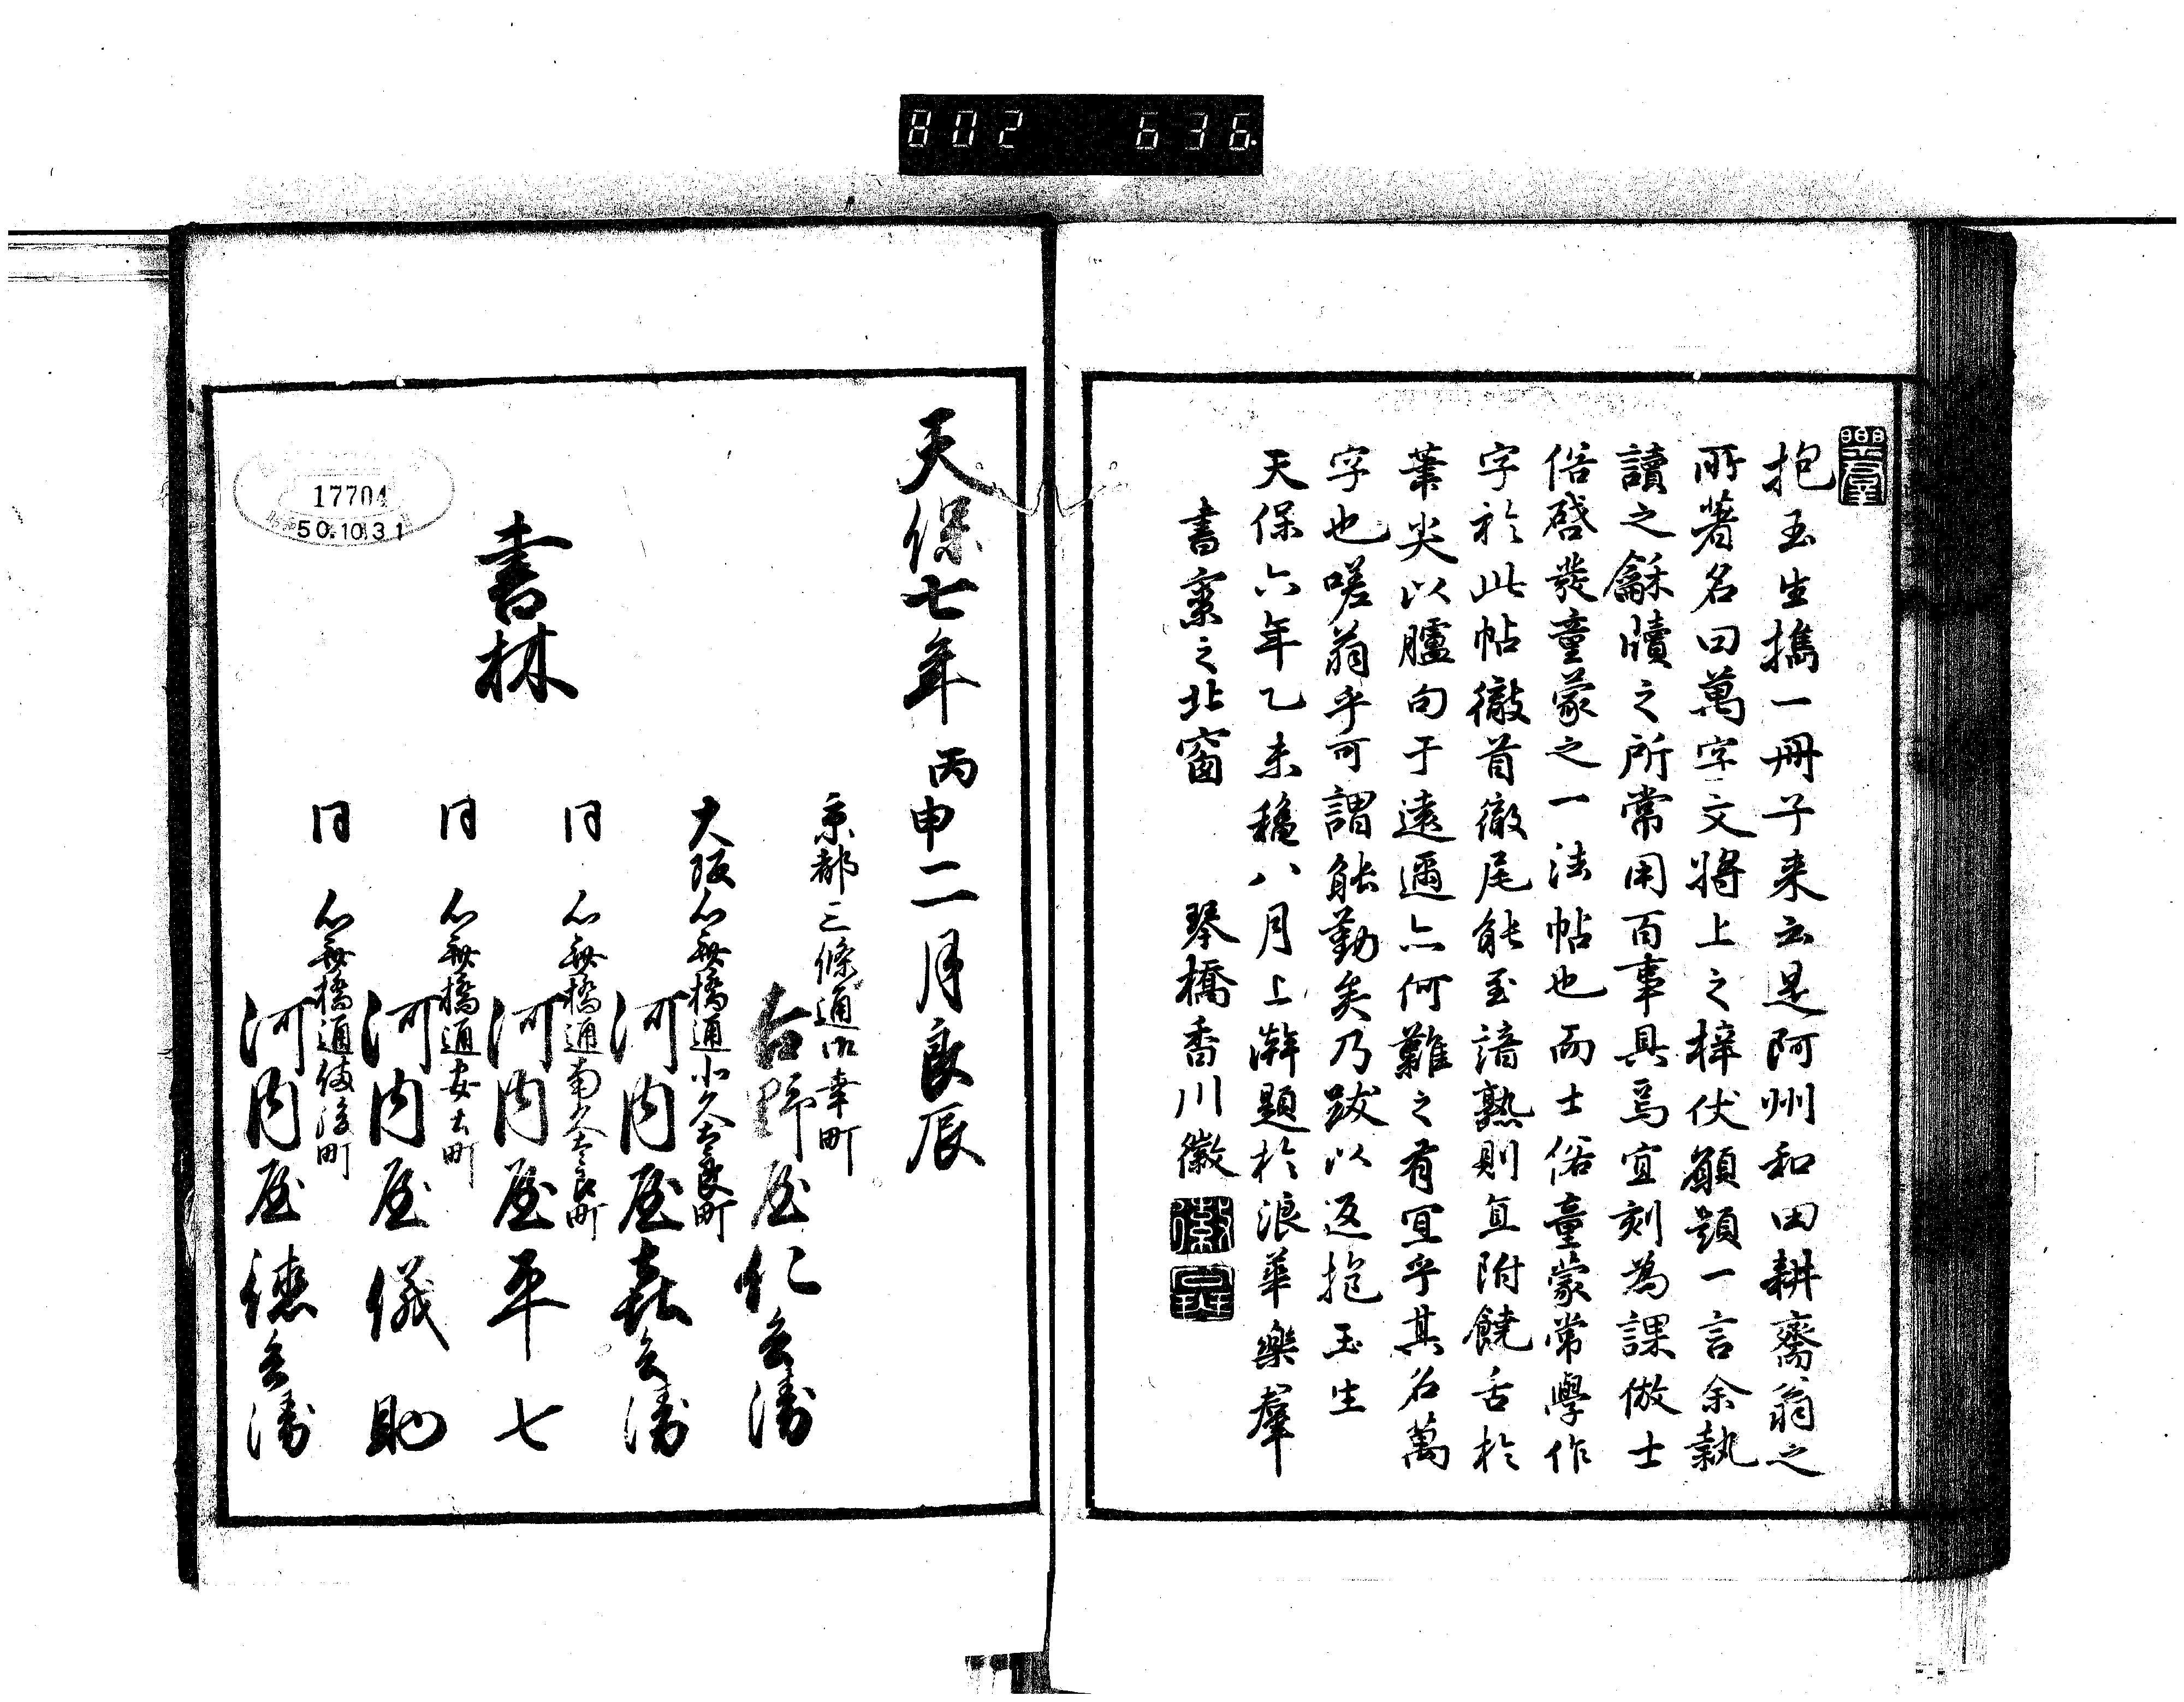 802 636
抱玉生攜一冊子来云是阿州和田耕齋翁之
所著名曰萬字文將上之梓伏願題一言余執
讀之龢牘之所常用百事具焉宜刻為課倣士
俗啓發童蒙之一法帖也而士俗童蒙常學作
字於此帖徹首徹尾能至諳熟則宜附饒舌於
筆尖以臚句于遠邇亦何難之有宜乎其名萬
字也嗟翁乎可謂能勤矣乃跋以返抱玉生
天保六年乙未穐八月上澣題於浪華樂羣
書室之北窗 琴橋香川徽
天保七年丙申二月良辰
京都三條通御幸町
吉野屋仁兵衛
大阪心斎橋通北久太良町
河内屋喜兵衛
同 心斎橋通南久太良町
河内屋平七
同 心斎橋通安土町
河内屋儀助
同 心斎橋通備後町
河内屋徳兵衛
書林
17704
50.10.31